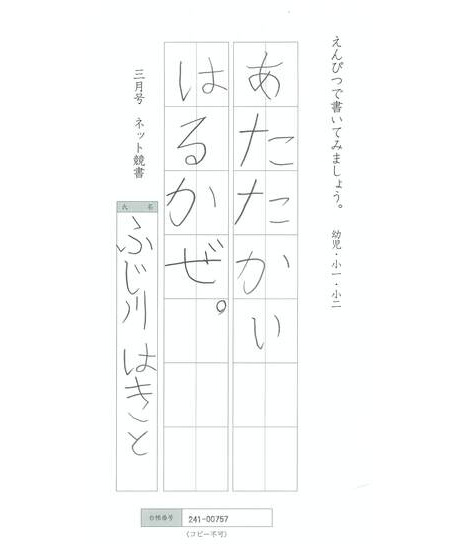 えんぴつで書いてみましょう。 幼児・小一・小二
あたたかい
はるかぜ。
三月号 ネット競書
氏名
ふじ川 はきと
台帳番号 241-00757
(コピー不可)